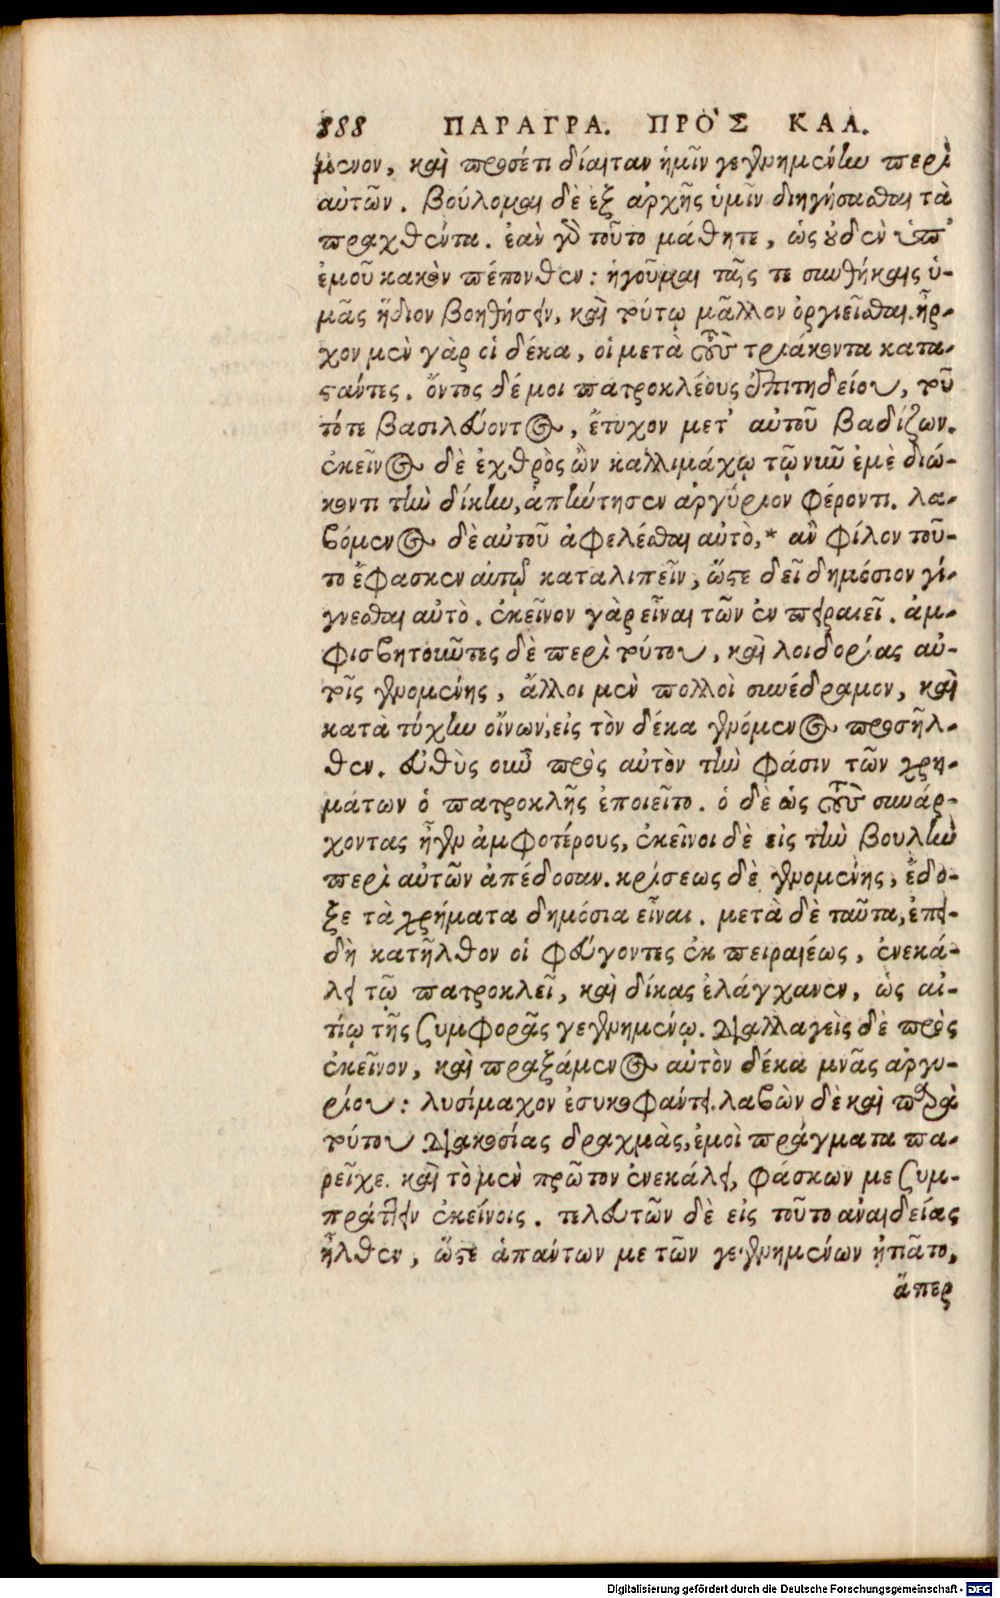 888 ΠΑΡΑΓΡΑ. ΠΡΟ῀Σ ΚΑΛ.
μενον, καὶ προσέτι δίαιταν ἡμῖν γεγενημένην περὶ
αὐτῶν. βούλομαι δὲ ἐξ ἀρχῆς ὑμῖν διηγήσασθαι τὰ
πραχθέντα. ἐὰν γὰρ τοῦτο μάθητε, ὡς οὐδὲν ὑπ'
ἐμοῦ κακὸν πέπονθεν: ἡγοῦμαι ταῖς τε συνθήκαις ὑ-
μᾶς ἥδιον βοηθήσειν, καὶ τούτῳ μᾶλλον ὀργιεῖσθαι. ἦρ-
χον μὲν γὰρ οἱ δέκα, οἱ μετὰ τοὺς τριάκοντα κατα-
στάντες. ὄντος δέ μοι πατροκλέους ἐπιτηδείου, τοῦ
τότε βασιλεύοντος, ἔτυχον μετ' αὐτοῦ βαδίζων.
ἐκεῖνος δὲ ἐχθρὸς ὢν καλλιμάχῳ τῷ νῦν ἐμὲ διώ-
κοντι τὴν δίκην, ἀπήντησεν ἀργύριον φέροντι. λα-
βόμενος δὲ αὐτοῦ ἀφελέσθαι αὐτὸ,* ἂν φίλον τοῦ-
το ἔφασκεν αὐτῷ καταλιπεῖν, ὥστε δεῖ δημόσιον γί-
γνεσθαι αὐτὸ. ἐκεῖνον γὰρ εἶναι τῶν ἐν πειραιεῖ. ἀμ-
φισβητούντες δὲ περὶ τούτου, καὶ λοιδορίας αὐ-
τοῖς γενομένης, ἄλλοι μὲν πολλοὶ συνέδραμον, καὶ
κατὰ τύχην οἴνων, εἰς τὸν δέκα γενόμενος προσῆλ-
θεν. εὐθὺς οὖν πρὸς αὐτὸν τὴν φάσιν τῶν χρη-
μάτων ὁ πατροκλῆς ἐποιεῖτο. ὁ δὲ ὡς τοὺς συνάρ-
χοντας ἦγεν ἀμφοτέρους, ἐκεῖνοι δὲ εἰς τὴν βουλὴν
περὶ αὐτῶν ἀπέδοσαν. κρίσεως δὲ γενομένης, ἔδο-
ξε τὰ χρήματα δημόσια εἶναι. μετὰ δὲ ταῦτα, ἐπει-
δὴ κατῆλθον οἱ φεύγοντες ἐκ πειραιέως, ἐνεκά-
λει τῷ πατροκλεῖ, καὶ δίκας ἐλάγχανεν, ὡς αἰ-
τίῳ τῆς ξυμφορᾶς γεγενημένῳ. διαλλαγεὶς δὲ πρὸς
ἐκεῖνον, καὶ πραξάμενος αὐτὸν δέκα μνᾶς ἀργυ-
ρίου: λυσίμαχον ἐσυκοφάντει. λαβὼν δὲ καὶ παρὰ
τούτου διακοσίας δραχμὰς, ἐμοὶ πράγματα πα-
ρεῖχε. καὶ τὸ μὲν πρῶτον ἐνεκάλει, φάσκων με ξυμ-
πράττειν ἐκείνοις. τελευτῶν δὲ εἰς τοῦτο ἀναιδείας
ἦλθεν, ὥστε ἁπάντων με τῶν γεγενημένων ᾐτιᾶτο,
ἅπερ
Digitalisierung gefördert durch die Deutsche Forschungsgemeinschaft - DFG